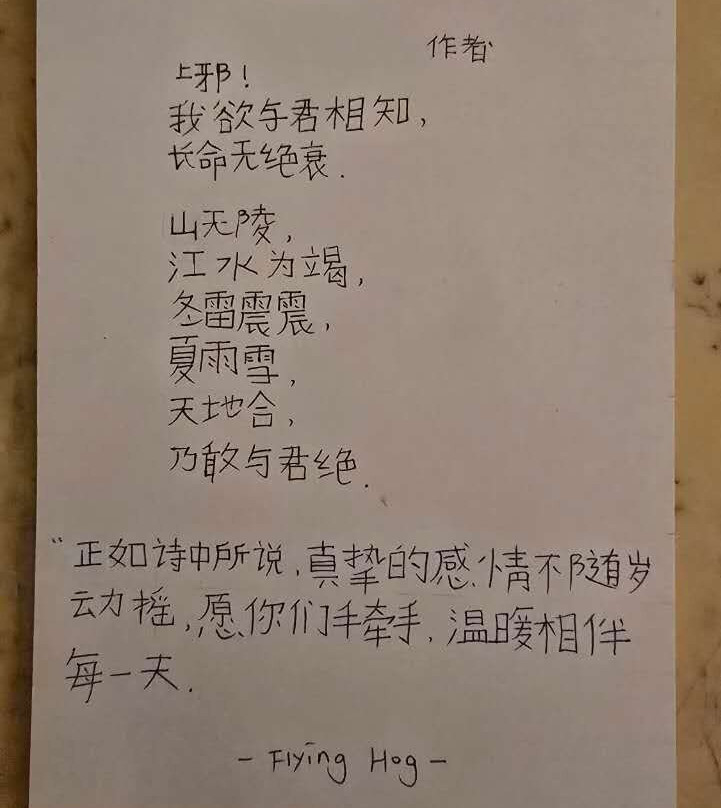 作者
上邪!
我欲与君相知,
长命无绝衰.
山无陵,
江水为竭,
冬雷震震,
夏雨雪,
天地合,
乃敢与君绝.
"正如诗中所说,真挚的感情不随岁
动摇,愿你们手牵手,温暖相伴
每一天.
- Flying Hog -